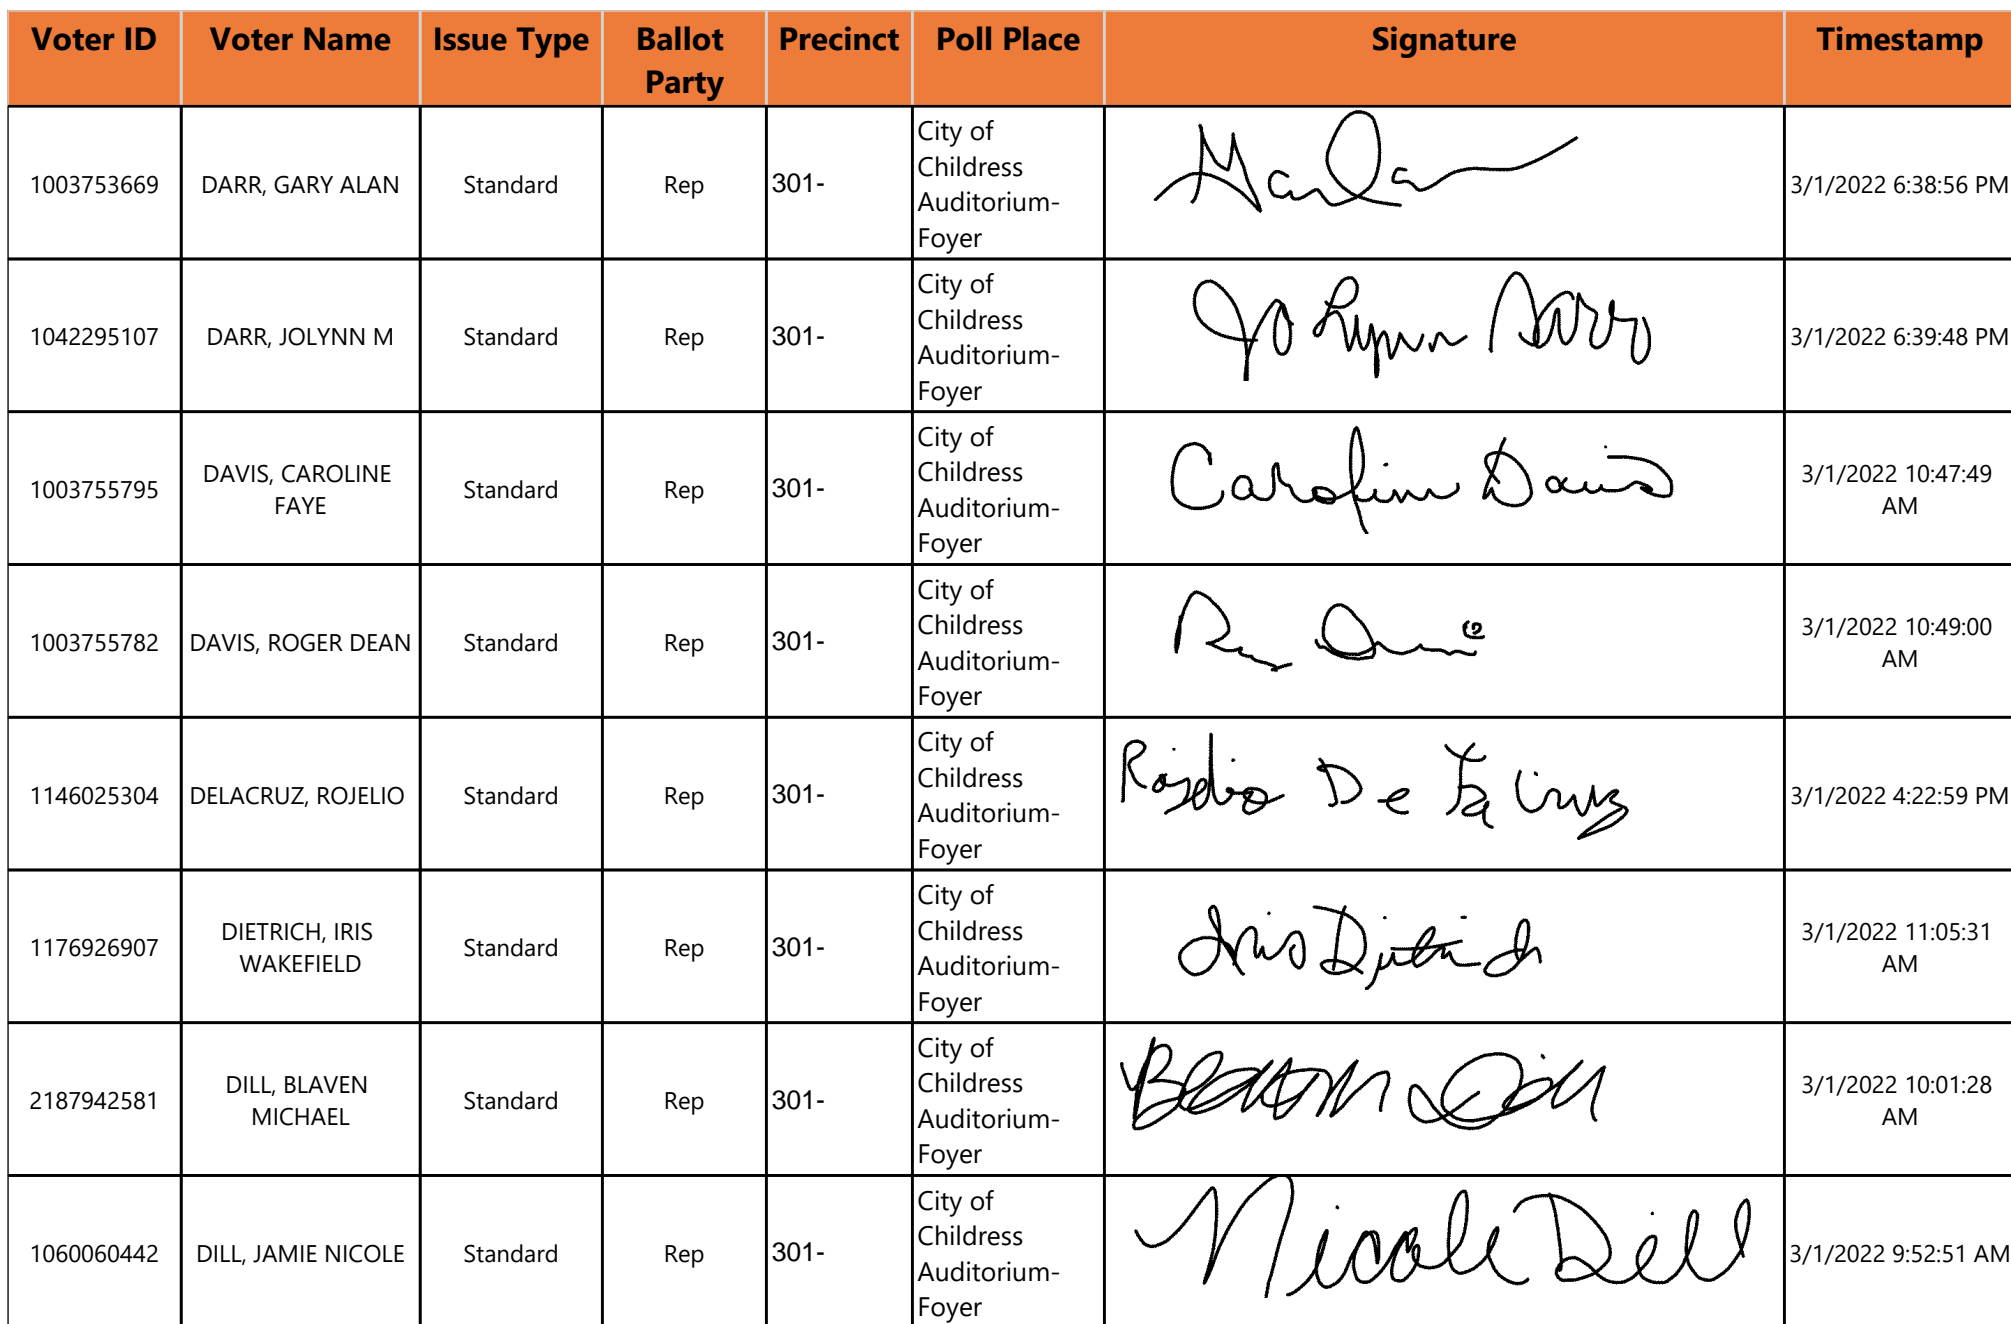 Voter ID Voter Name Issue Type Ballot Party Precinct Poll Place Signature Timestamp
1003753669 DARR, GARY ALAN Standard Rep 301- City of Childress Auditorium-Foyer 3/1/2022 6:38:56 PM
1042295107 DARR, JOLYNN M Standard Rep 301- City of Childress Auditorium-Foyer Jo Lynn Darr 3/1/2022 6:39:48 PM
1003755795 DAVIS, CAROLINE FAYE Standard Rep 301- City of Childress Auditorium-Foyer Caroline Davis 3/1/2022 10:47:49 AM
1003755782 DAVIS, ROGER DEAN Standard Rep 301- City of Childress Auditorium-Foyer 3/1/2022 10:49:00 AM
1146025304 DELACRUZ, ROJELIO Standard Rep 301- City of Childress Auditorium-Foyer Rojelio De La Cruz 3/1/2022 4:22:59 PM
1176926907 DIETRICH, IRIS WAKEFIELD Standard Rep 301- City of Childress Auditorium-Foyer Iris Dietrich 3/1/2022 11:05:31 AM
2187942581 DILL, BLAVEN MICHAEL Standard Rep 301- City of Childress Auditorium-Foyer Dill 3/1/2022 10:01:28 AM
1060060442 DILL, JAMIE NICOLE Standard Rep 301- City of Childress Auditorium-Foyer Nicole Dill 3/1/2022 9:52:51 AM